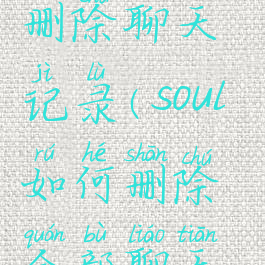 删除聊天
jì lù
记录(soul
rú hé shān chú
如何删除
quán bù liáo tiān
全部聊天